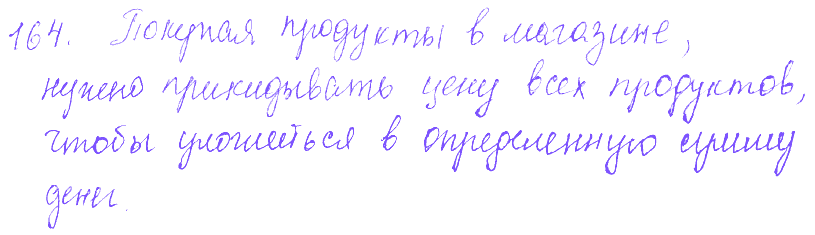 164. Покупая продукты в магазине,
нужно прикидывать цену всех продуктов,
чтобы уложиться в определенную сумму
денег.